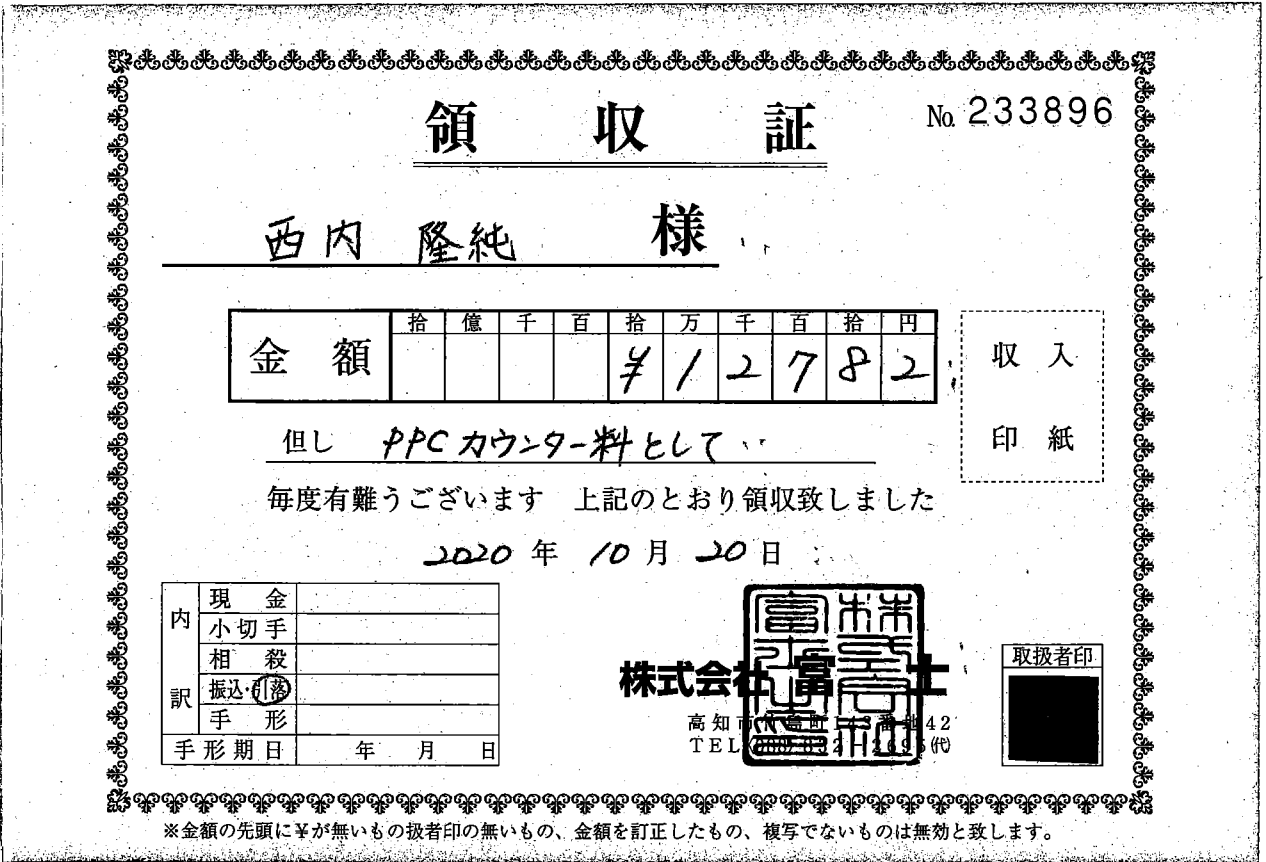 領収証
No. 233896
西内 隆純 様
金額
拾 億 千 百 拾 万 千 百 拾 円
¥ 1 2 7 8 2
収入
印紙
但し PPCカウンター料として
毎度有難うございます 上記のとおり領収致しました
2020年 10月 20日
内訳
現金
小切手
相殺
振込・引落
手形
手形期日 年 月 日
株式会社 富士
高知市 町143番地42
TEL 2695(代)
取扱者印
※金額の先頭に¥が無いもの扱者印の無いもの、金額を訂正したもの、複写でないものは無効と致します。